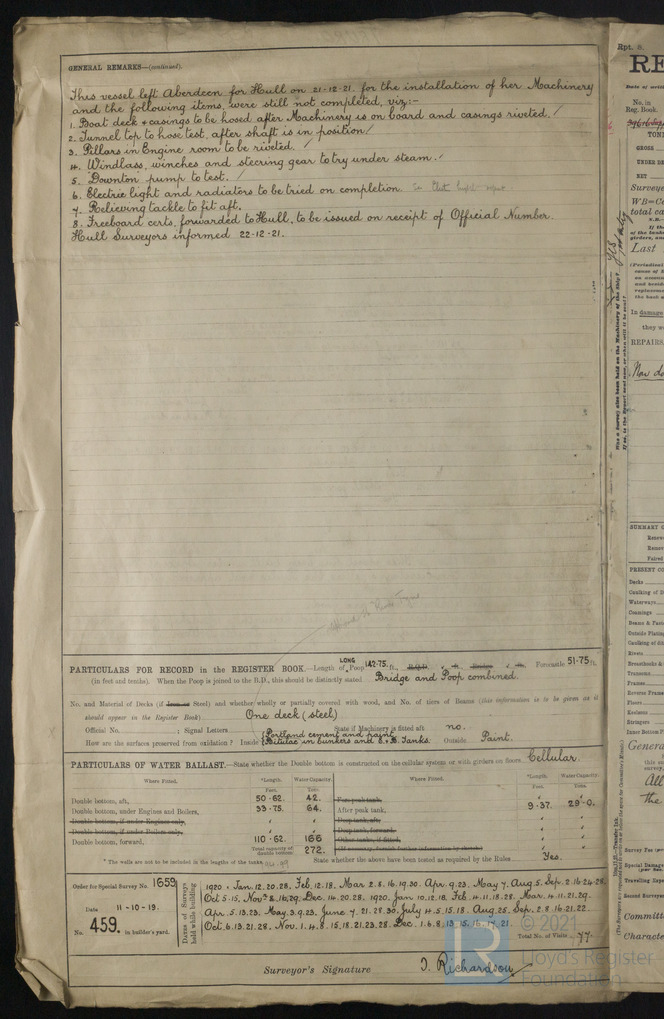 GENERAL REMARKS—(continued).
This vessel left Aberdeen for Hull on 21-12-21. for the installation of her Machinery
and the following items, were still not completed, viz:-
1. Boat deck & casings to be hosed after Machinery is on board and casings riveted. /
2. Tunnel top to hose test, after shaft is in position /
3. Pillars in Engine room to be riveted. /
4. Windlass, winches and steering gear to try under steam. /
5. "Downton" pump to test. /
6. Electric light and radiators to be tried on completion.
7. Relieving tackle to fit aft.
8. Freeboard certs, forwarded to Hull, to be issued on receipt of Official Number.
Hull Surveyors informed 22-12-21.
PARTICULARS FOR RECORD in the REGISTER BOOK.—Length of LONG Poop 142·75. ft., R.Q.D. ft. Bridge ft. Forecastle 51·75 ft.
(in feet and tenths). When the Poop is joined to the B.D., this should be distinctly stated Bridge and Poop combined.
No. and Material of Decks (if Iron or Steel) and whether wholly or partially covered with wood, and No. of tiers of Beams (this information is to be given as it
should appear in the Register Book) One deck (steel)
Official No. ; Signal Letters State if Machinery is fitted aft no.
How are the surfaces preserved from oxidation? Inside Portland cement and paint Bitulac in bunkers and Tanks. Outside Paint.
PARTICULARS OF WATER BALLAST.—State whether the Double bottom is constructed on the cellular system or with girders on floors Cellular.
Where Fitted. *Length. Water-Capacity. Where Fitted. *Length. Water-Capacity.
Feet. Tons. Feet. Tons.
Double bottom, aft, 50·62. 42. Fore peak tank,
Double bottom, under Engines and Boilers, 33·75. 64. After peak tank, 9·37. 29·0.
Double bottom, if under Engines only, Deep tank, aft,
Double bottom, if under Boilers only, Deep tank, forward,
Double bottom, forward, 110·62. 166 Other tanks, if fitted,
Total capacity of double bottom 272.
* The wells are not to be included in the lengths of the tanks. State whether the above have been tested as required by the Rules Yes.
Order for Special Survey No. 1659
Date 11-10-19.
No. 459. in builder's yard.
Dates of Surveys held while building
1920. Jan. 12. 20. 28. Feb. 12. 18. Mar 2. 8. 16. 19. 30. Apr. 9. 23. May 7. Aug. 5. Sep. 2. 16. 24. 28.
Oct 5. 15. Nov 2. 8. 16. 29. Dec. 14. 20. 28. 1920. Jan. 10. 12. 18. Feb. 4. 11. 18. 28. Mar. 4. 11. 21. 29.
Apr. 5. 13. 23. May. 3. 9. 23. June 7. 21. 28. 30. July 4. 5. 15. 18. Aug. 25. Sep. 2. 8. 16. 21. 22.
Oct. 6. 13. 21. 28. Nov. 1. 4. 8. 15. 18. 21. 23. 28. Dec. 1. 6. 8. 13. 15. 16. 17. 21.
Total No. of Visits 77.
Surveyor's Signature J. Richardson
© 2021
Lloyd's Register
Foundation
LR
Rpt. 8.
RE
No. in
Reg. Book.
TONS
GROSS
UNDER DE
NET
Surveye
W B=Ce
total ca
Last
In damage
they we
REPAIRS
Now do
SUMMARY O
PRESENT CO
Decks
Caulking of D
Waterways
Coamings
Beams & Faste
Outside Plating
Caulking of di
Rivets
Breasthooks &
Transoms
Frames
Reverse Frames
Floors
Keelsons
Stringers
Inner Bottom P
Genera
All
the
Survey Fee
Special Damage
Travelling Expe
Second Surveyor
Committe
Character